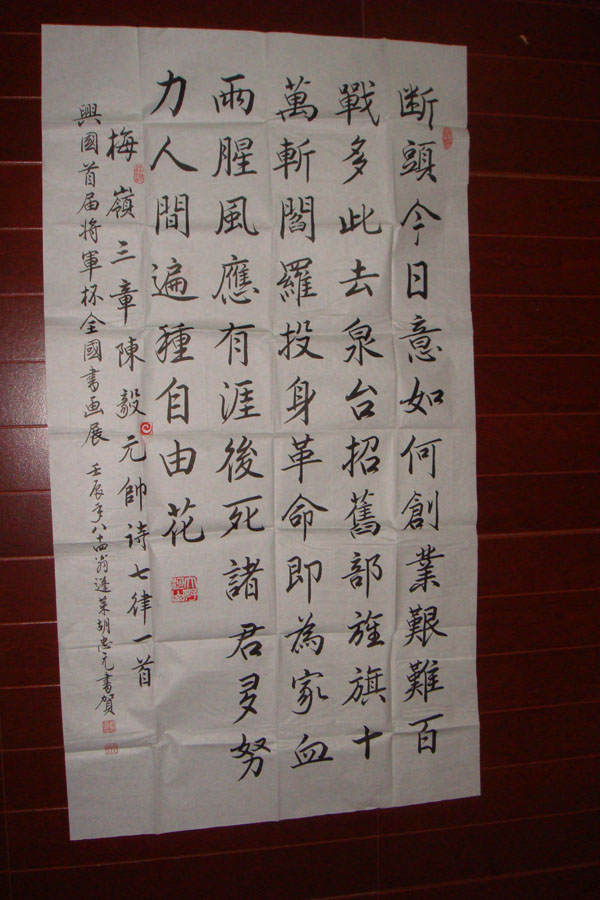 断頭今日意如何創業艱難百
戰多此去泉台招舊部旌旗十
萬斬閻羅投身革命即為家血
雨腥風應有涯後死諸君多努
力人間遍種自由花
梅嶺三章陳毅元帥诗七律一首
興國首届将軍杯全國書画展 壬辰年八十四翁蓬莱胡忠元書賀